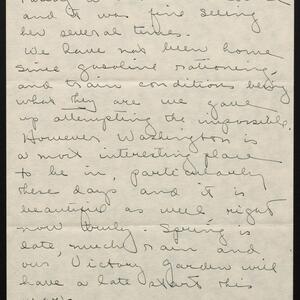 and it was fine seeing
her several times.
We have not been home
since gasoline rationing,
and train conditions being
what they are we gave
up attempting the impossible.
However Washington is
a most interesting place
to be in, particularly
these days and it is
beautiful as well right
now truly. Spring is
late, much rain and
our Victory Garden will
have a late start this